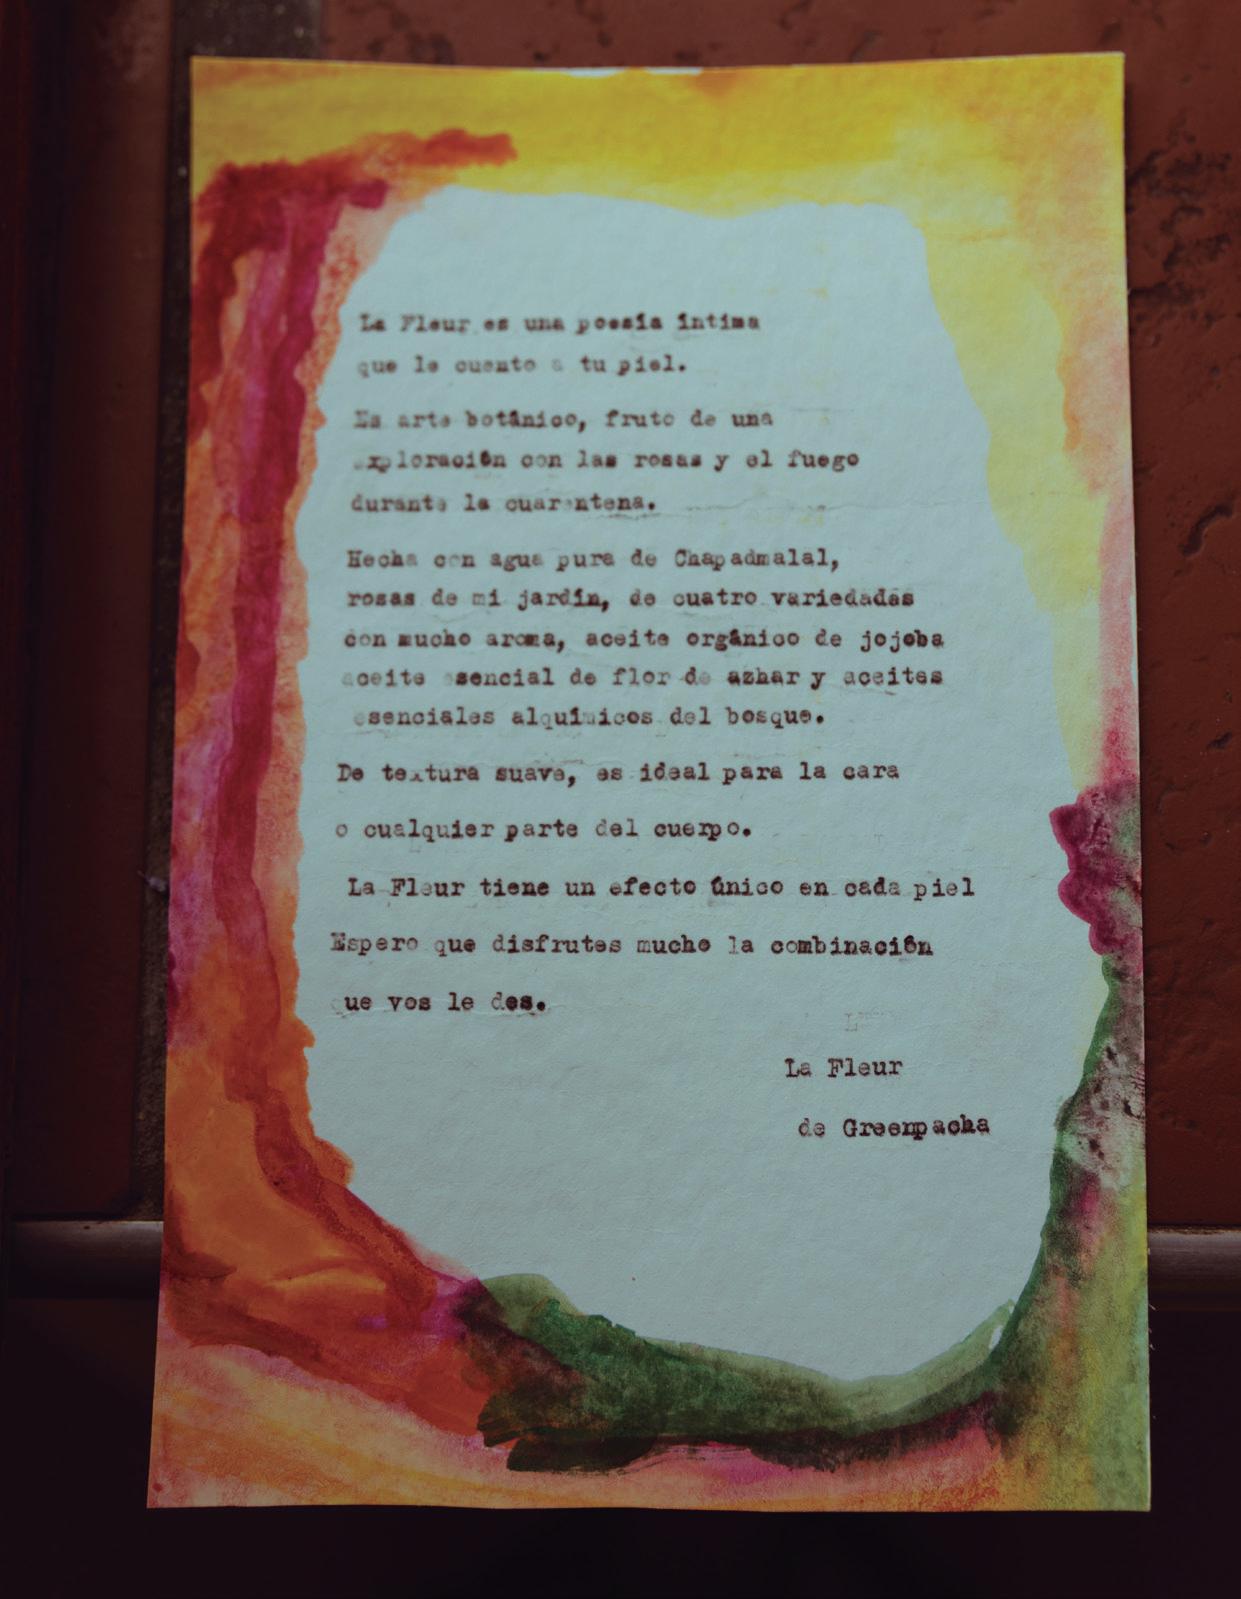 La Fleur es una poesía íntima
que le cuento a tu piel.
Es arte botánico, fruto de una
exploración con las rosas y el fuego
durante la cuarentena.
Hecha con agua pura de Chapadmalal,
rosas de mi jardín, de cuatro variedades
con mucho aroma, aceite orgánico de jojoba
aceite esencial de flor de azhar y aceites
esenciales alquímicos del bosque.
De textura suave, es ideal para la cara
o cualquier parte del cuerpo.
La Fleur tiene un efecto único en cada piel
Espero que disfrutes mucho la combinación
que vos le des.
La Fleur
de Greenpacha